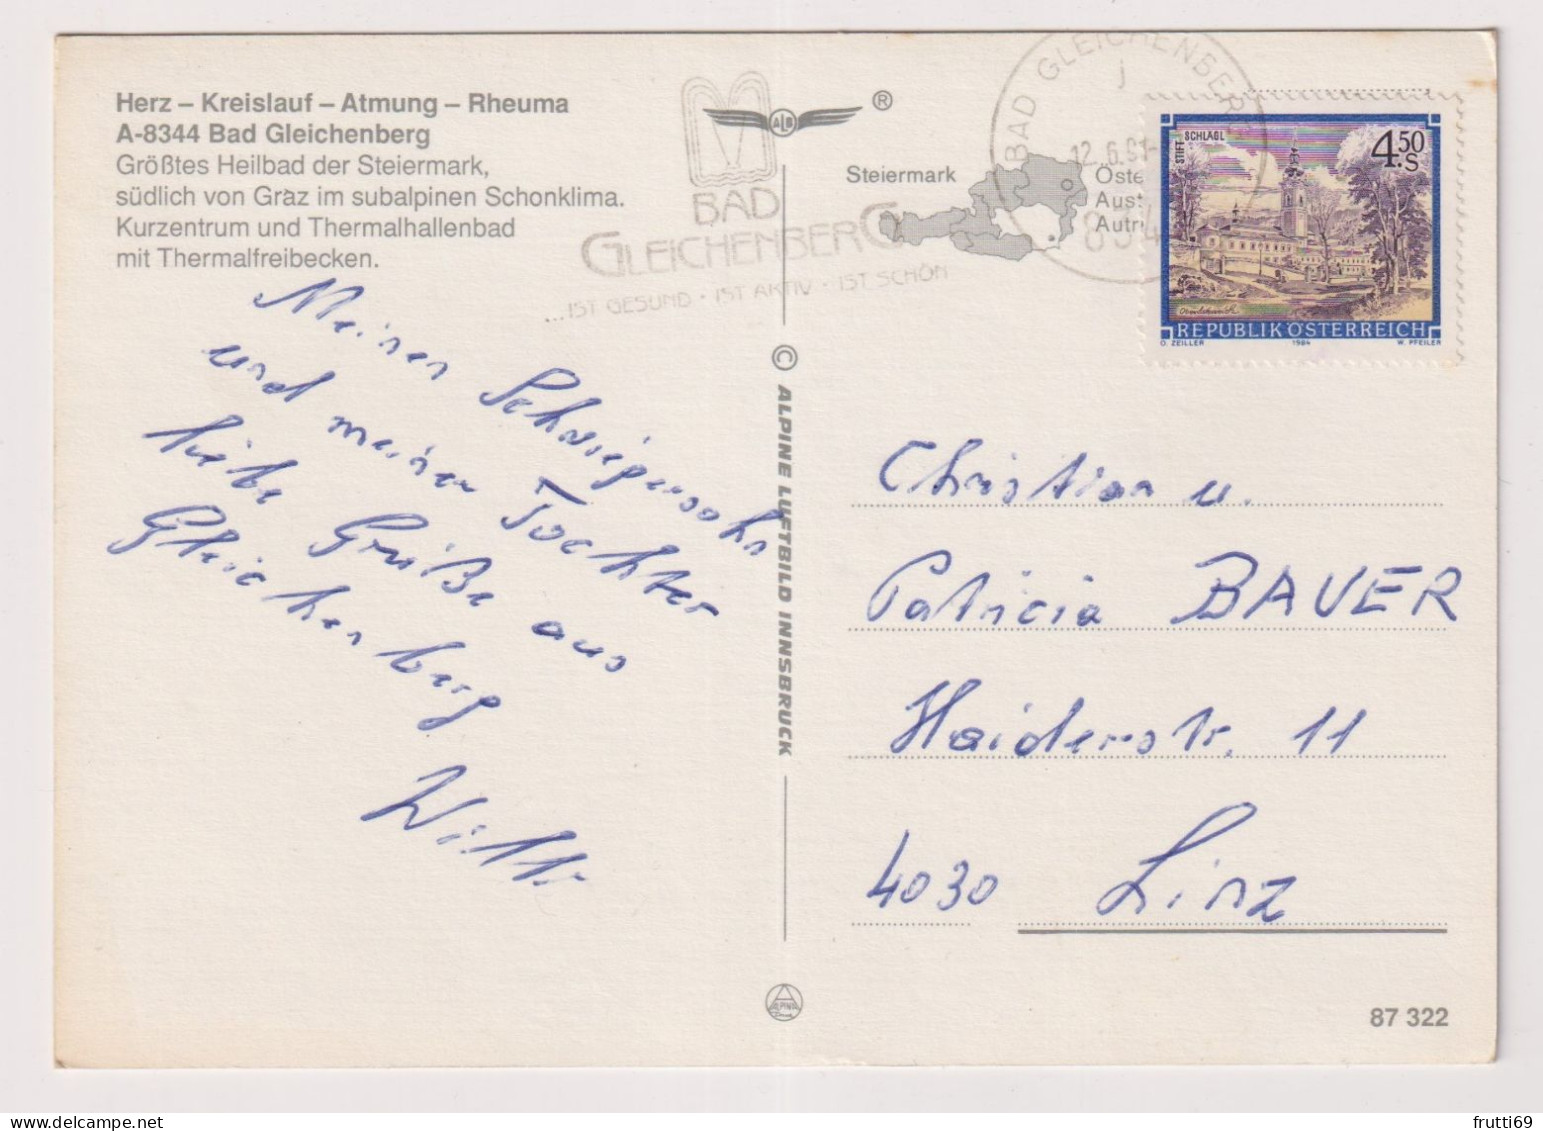 Herz – Kreislauf – Atmung – Rheuma
A-8344 Bad Gleichenberg
Größtes Heilbad der Steiermark,
südlich von Graz im subalpinen Schonklima.
Kurzentrum und Thermalhallenbad
mit Thermalfreibecken.
BAD
GLEICHENBERG
...IST GESUND · IST AKTIV · IST SCHÖN
ALB ®
Steiermark
Öste
Aust
Autri
BAD GLEICHENBERG
j
12.6.91-
834
STIFT SCHLÄGL
4.50
S
REPUBLIK ÖSTERREICH
O. ZEILLER 1984 W. PFEILER
Meinen Schwiegersohn
und meiner Tochter
liebe Grüße aus
Gleichenberg
Willi
© ALPINE LUFTBILD INNSBRUCK
Christian u.
Patricia BAUER
Haiderstr. 11
4030 Linz
87 322
frutti69